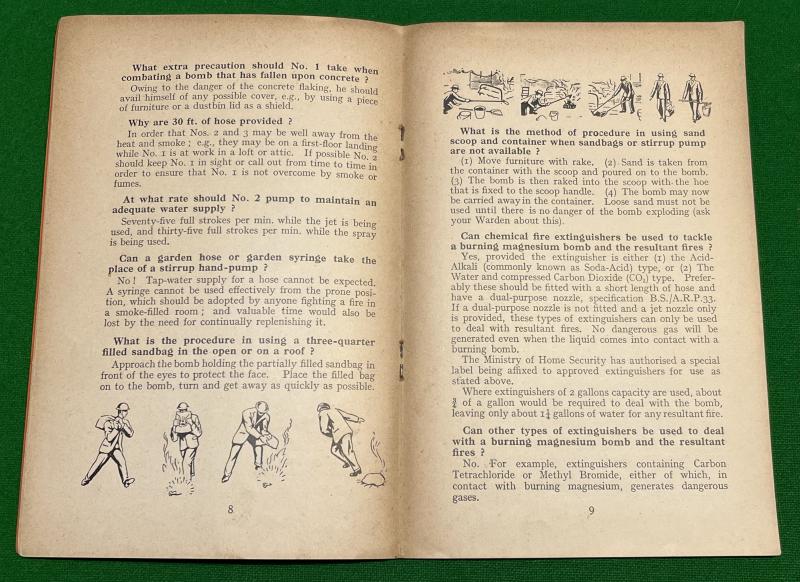 What extra precaution should No. 1 take when
combating a bomb that has fallen upon concrete ?
Owing to the danger of the concrete flaking, he should
avail himself of any possible cover, e.g., by using a piece
of furniture or a dustbin lid as a shield.
Why are 30 ft. of hose provided ?
In order that Nos. 2 and 3 may be well away from the
heat and smoke ; e.g., they may be on a first-floor landing
while No. 1 is at work in a loft or attic. If possible No. 2
should keep No. 1 in sight or call out from time to time in
order to ensure that No. 1 is not overcome by smoke or
fumes.
At what rate should No. 2 pump to maintain an
adequate water supply ?
Seventy-five full strokes per min. while the jet is being
used, and thirty-five full strokes per min. while the spray
is being used.
Can a garden hose or garden syringe take the
place of a stirrup hand-pump ?
No ! Tap-water supply for a hose cannot be expected.
A syringe cannot be used effectively from the prone posi-
tion, which should be adopted by anyone fighting a fire in
a smoke-filled room ; and valuable time would also be
lost by the need for continually replenishing it.
What is the procedure in using a three-quarter
filled sandbag in the open or on a roof ?
Approach the bomb holding the partially filled sandbag in
front of the eyes to protect the face. Place the filled bag
on to the bomb, turn and get away as quickly as possible.
8
What is the method of procedure in using sand
scoop and container when sandbags or stirrup pump
are not available ?
(1) Move furniture with rake. (2) Sand is taken from
the container with the scoop and poured on to the bomb.
(3) The bomb is then raked into the scoop with the hoe
that is fixed to the scoop handle. (4) The bomb may now
be carried away in the container. Loose sand must not be
used until there is no danger of the bomb exploding (ask
your Warden about this).
Can chemical fire extinguishers be used to tackle
a burning magnesium bomb and the resultant fires ?
Yes, provided the extinguisher is either (1) the Acid-
Alkali (commonly known as Soda-Acid) type, or (2) The
Water and compressed Carbon Dioxide (CO₂) type. Prefer-
ably these should be fitted with a short length of hose and
have a dual-purpose nozzle, specification B.S./A.R.P.33.
If a dual-purpose nozzle is not fitted and a jet nozzle only
is provided, these types of extinguishers can only be used
to deal with resultant fires. No dangerous gas will be
generated even when the liquid comes into contact with a
burning bomb.
The Ministry of Home Security has authorised a special
label being affixed to approved extinguishers for use as
stated above.
Where extinguishers of 2 gallons capacity are used, about
¾ of a gallon would be required to deal with the bomb,
leaving only about 1¼ gallons of water for any resultant fire.
Can other types of extinguishers be used to deal
with a burning magnesium bomb and the resultant
fires ?
No. For example, extinguishers containing Carbon
Tetrachloride or Methyl Bromide, either of which, in
contact with burning magnesium, generates dangerous
gases.
9